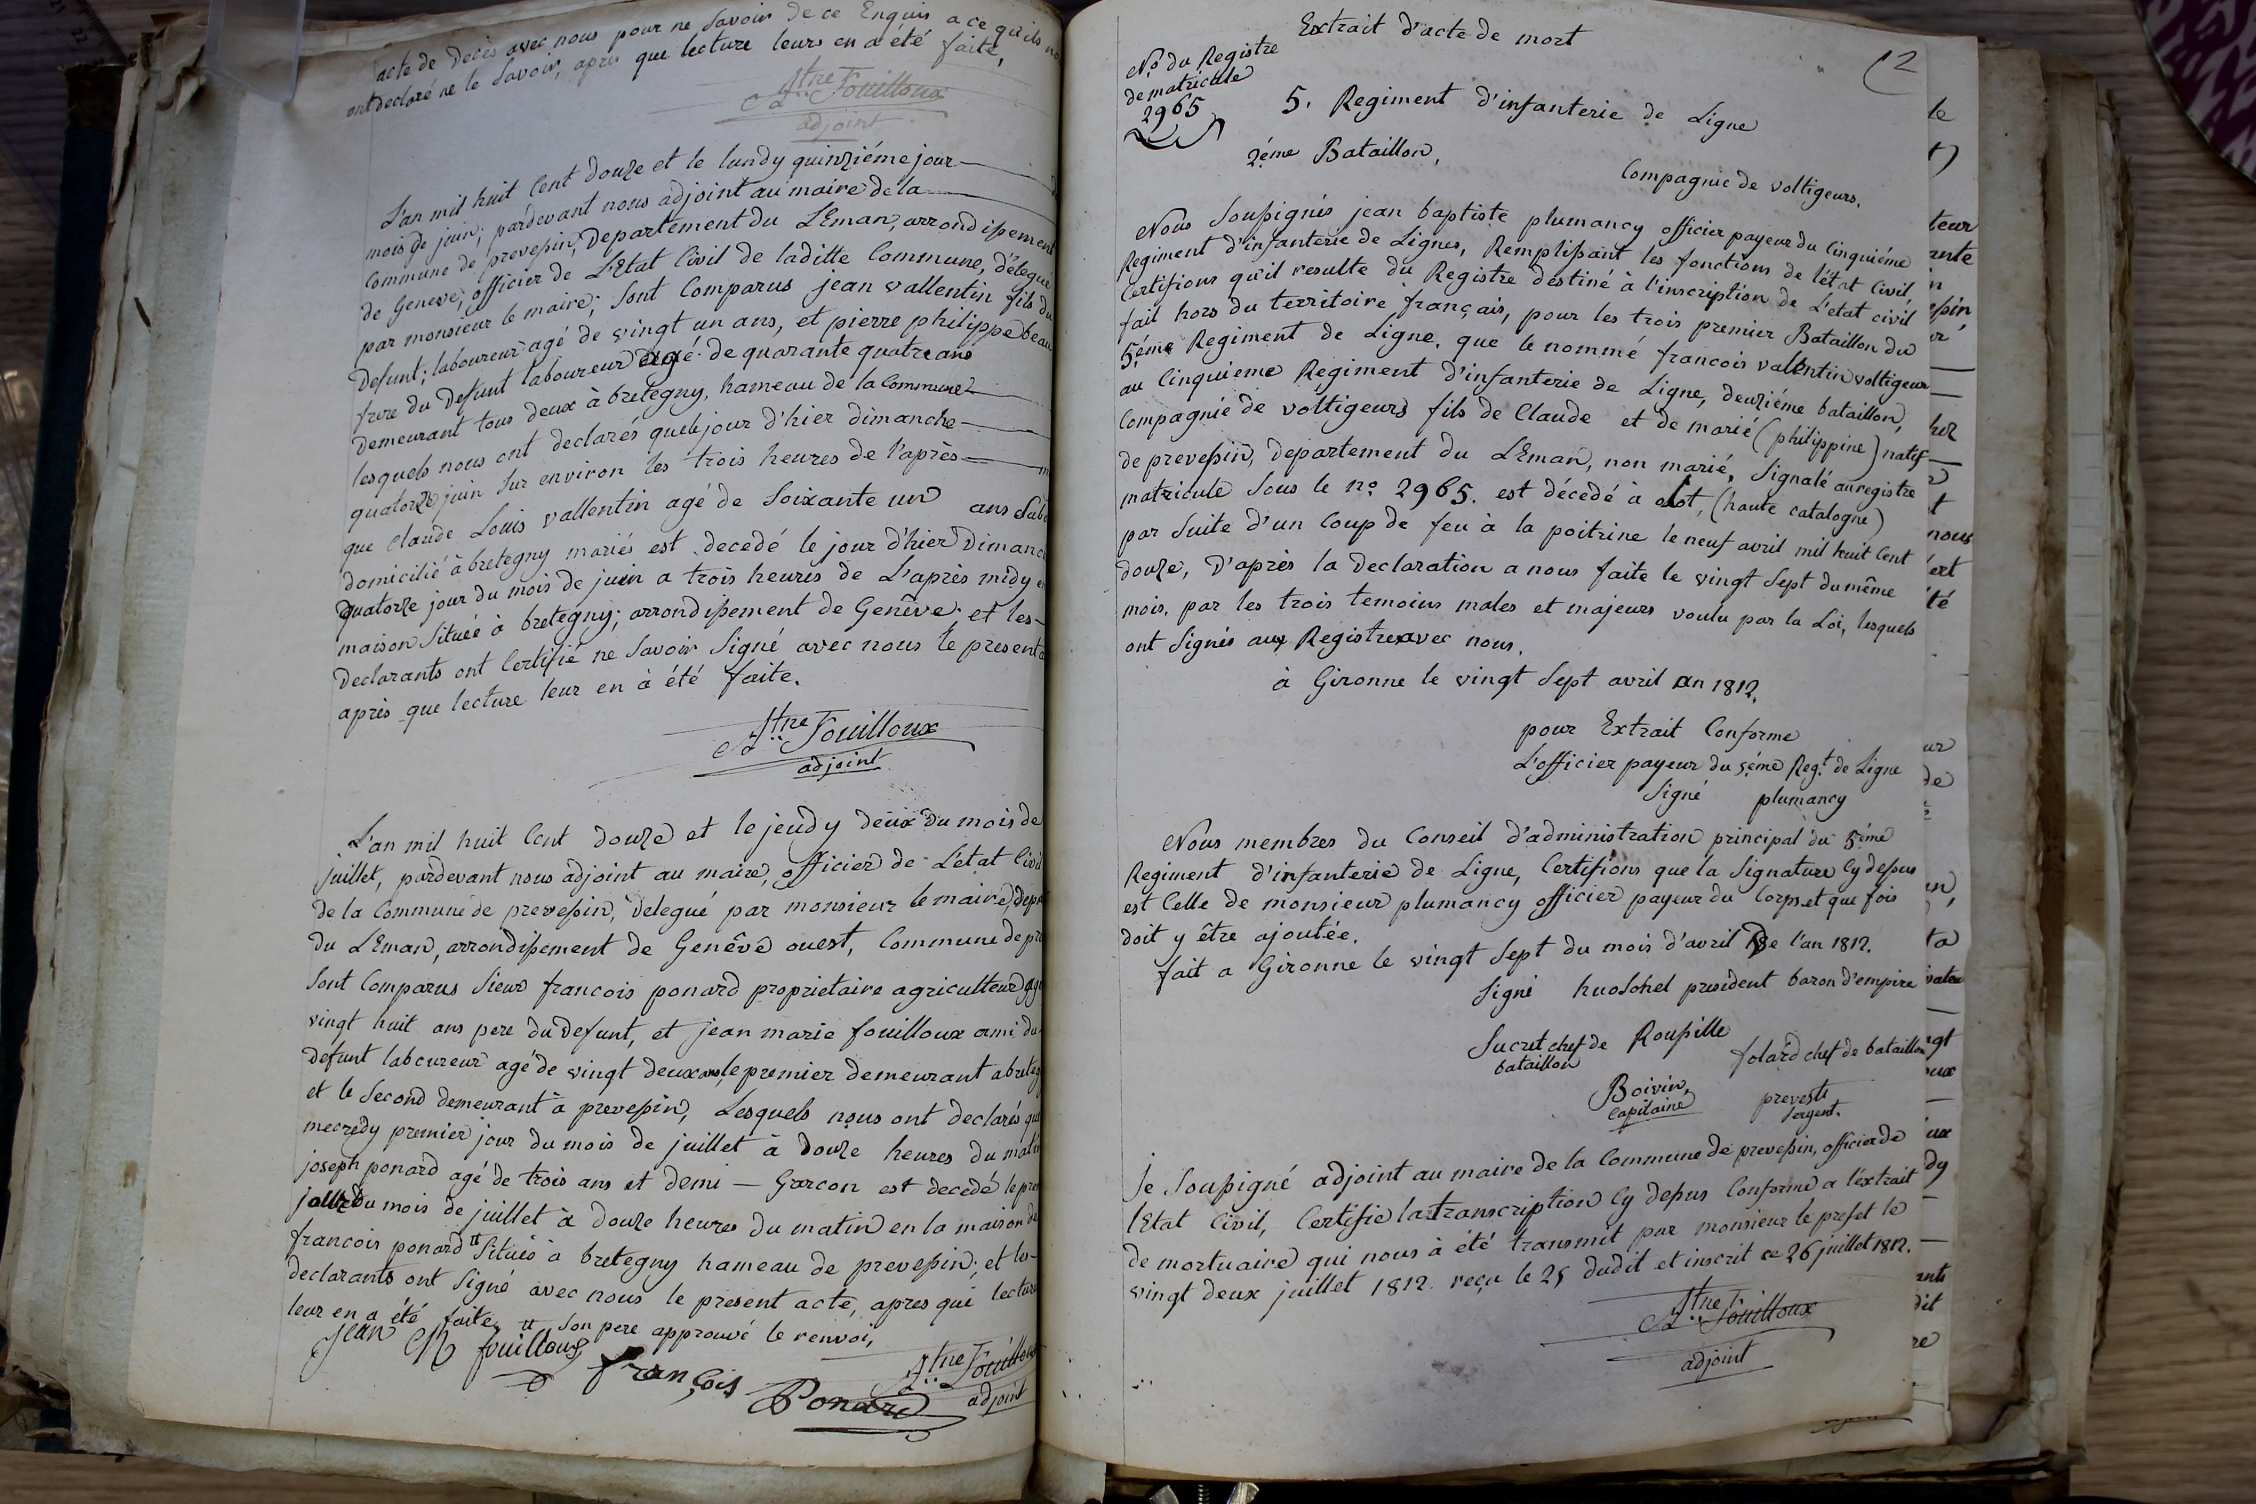 acte de Decès avec nous pour ne Savoir de ce Enquis a ce qu'ils
ont declaré ne le Savoir, après que lecture leurs en a été faite,
Atne Fouilloux
adjoint
L'an mil huit Cent douze et le lundy quinziéme jour
mois de juin; pardevant nous adjoint au maire de la
Commune de preveßin, Departement du LEman, arrondißement
de Geneve, officier de L'Etat Civil de laditte Commune, délegué
par monsieur le maire; Sont Comparus jean vallentin fils du
Defunt; laboureur agé de vingt un ans, et pierre philippe beau
frere du Defunt laboureur agé de quarante quatre ans
Demeurant tous deux à bretegny, hameau de la Commune
lesquels nous ont declarés que le jour d'hier dimanche
quatorze juin Sur environ les trois heures de l'après
que Claude Louis vallentin agé de Soixante un ans
domicilié à bretegny mariés est decedé le jour d'hier Dimanc
quatorze jour du mois de juin a trois heures de L'après midy
maison Située à bretegny; arrondißement de Genêve; et les
Declarants ont Certifié ne Savoir Signé avec nous le present
après que lecture leur en à été faite.
Atne Fouilloux
adjoint
L'an mil huit Cent douze et le jeudy deux du mois de
juillet, pardevant nous adjoint au maire, officier de L'état Civil
de la Commune de preveßin, delegué par monsieur le maire, Dep
du LEman, arrondißement de Genêve ouest, Commune de pre
Sont Comparus Sieur francois ponard proprietaire agriculteur agé
vingt huit ans pere du Defunt, et jean marie fouilloux ami du
Defunt laboureur agé de vingt deux ans, le premier demeurant a breteg
et le Second demeurant à preveßin, Lesquels nous ont declarés que
mecredy premier jour du mois de juillet à douze heures du matin
joseph ponard agé de trois ans et demi — Garcon est decedé le pre
jour du mois de juillet à douze heures du matin en la maison de
francois ponard # Situés à bretegny hameau de preveßin; et les
declarants ont Signé avec nous le present acte, apres que lecture
leur en a été faite, # Son pere approuvé le renvoi,
jean M fouilloux
françois Ponard
Atne Fouilloux
adjoint
Extrait d'acte de mort
2
No du Registre
de matricule
2965
5. Regiment d'infanterie de Ligne
2éme Bataillon,
Compagnie de voltigeurs.
Nous Soußignés jean baptiste plumancy officier payeur du Cinquiéme
Regiment d'infanterie de Lignes, Remplißant les fonctions de l'état Civil,
Certifions qu'il resulte du Registre destiné à l'inscription de L'etat civil
fait hors du territoire français, pour les trois premier Bataillon du
5éme Regiment de Ligne, que le nommé francois vallentin voltigeur
au Cinquieme Regiment d'infanterie de Ligne, deuziéme bataillon,
Compagnie de voltigeurs fils de Claude et de marié (philippine) natif
de preveßin, departement du LEman, non marié, Signalé au registre
matricule Sous le no 2965. est décedé à olot, (haute catalogne)
par Suite d'un Coup de feu à la poitrine le neuf avril mil huit Cent
douze, D'après la Declaration a nous faite le vingt Sept du même
mois, par les trois temoins males et majeurs voulu par la Loi, lesquels
ont Signés aux Registres avec nous.
à Gironne le vingt Sept avril an 1812.
pour Extrait Conforme
L'officier payeur du 5éme Regt de Ligne
Signé plumancy
Nous membres du Conseil d'administration principal du 5éme
Regiment d'infanterie de Ligne, Certifions que la Signature Cy deßus
est Celle de monsieur plumancy officier payeur du Corps et que fois
doit y être ajoutée.
fait a Gironne le vingt Sept du mois d'avril De l'an 1812.
Signé huoSchel president baron d'empire
Sucret chef de Roußille
bataillon
folard chef de bataillon
Boivin, prevesti
Capitaine Sergent.
Je Soußigné adjoint au maire de la Commune de preveßin, officier de
lEtat Civil, Certifie la transcription Cy deßus Conforme a l'extrait
de mortuaire qui nous à été transmit par monsieur le prefet le
vingt deux juillet 1812. reçu le 25 dudit et inscrit ce 26 juillet 1812.
Atne Fouilloux
adjoint